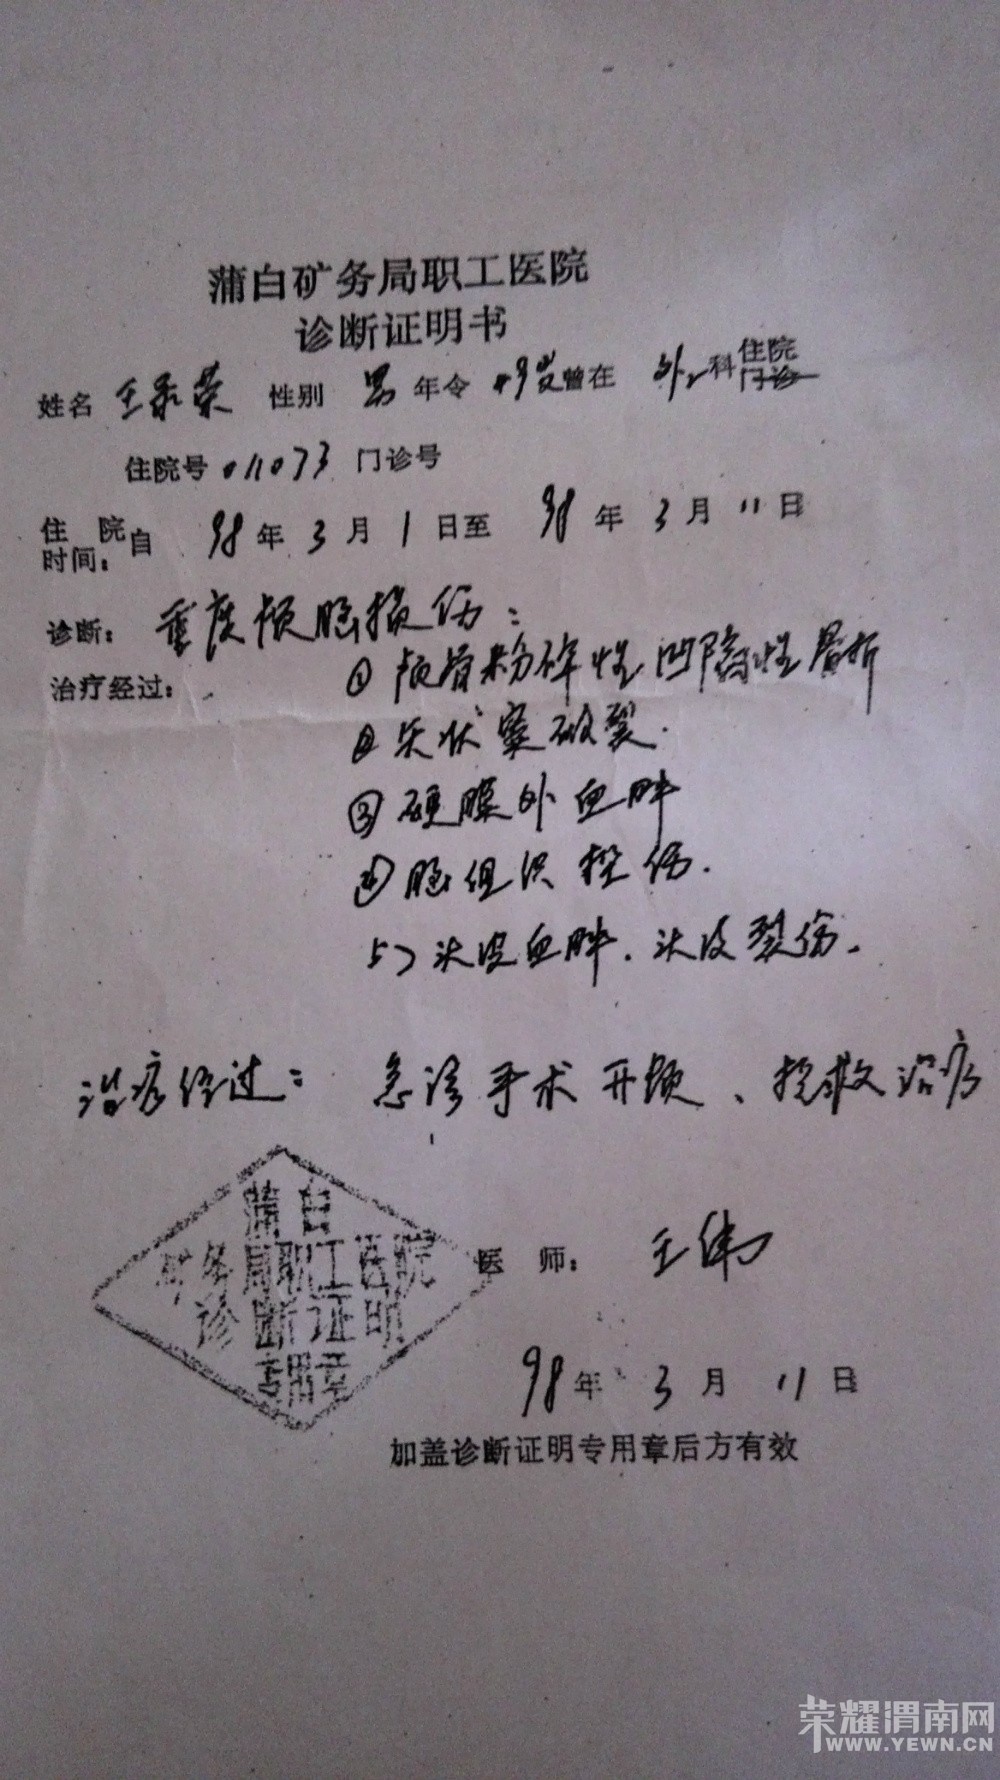 蒲白矿务局职工医院
诊断证明书
姓名 王永荣 性别 男 年令 49岁曾在 外科 住院 门诊
住院号 011073 门诊号
住院时间：自 98年3月1日至 98年3月11日
诊断：重度颅脑损伤：
治疗经过： ① 颅骨粉碎性凹陷性骨折
② 矢状窦破裂.
③ 硬膜外血肿
④ 脑组织挫伤.
5) 头皮血肿．头皮裂伤.
治疗经过： 急诊手术开颅、抢救治疗
蒲白
矿务局职工医院
诊断证明
专用章
医 师： 王伟
98年3月11日
加盖诊断证明专用章后方有效
荣耀渭南网
WWW.YEWN.CN